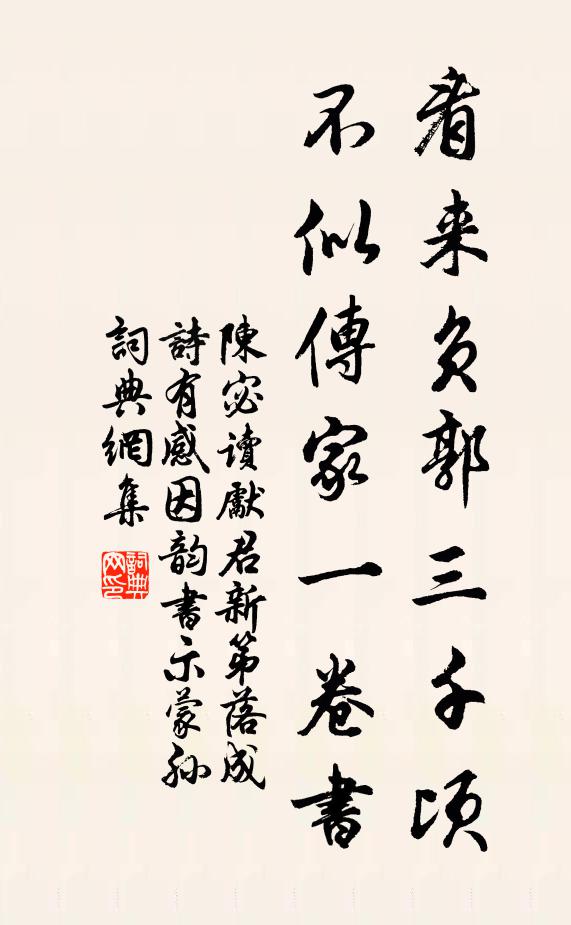 看来负郭三千顷
不似傳家一卷書
陳宓讀獻君新第落成
詩有感因韵書示蒙孙
詞典網集
詞典網印